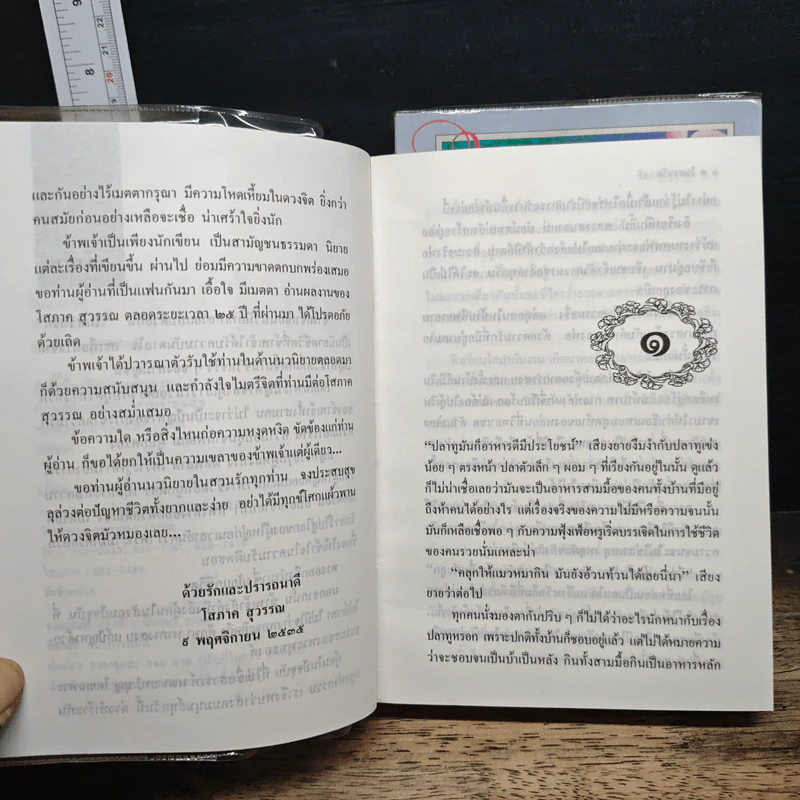 และกันอย่างไร้เมตตากรุณา มีความโหดเหี้ยมในดวงจิต ยิ่งกว่า
คนสมัยก่อนอย่างเหลือจะเชื่อ น่าเศร้าใจยิ่งนัก
ข้าพเจ้าเป็นเพียงนักเขียน เป็นสามัญชนธรรมดา นิยาย
แต่ละเรื่องที่เขียนขึ้น ผ่านไป ย่อมมีความขาดตกบกพร่องเสมอ
ขอท่านผู้อ่านที่เป็นแฟนกันมา เอื้อใจ มีเมตตา อ่านผลงานของ
โสภาค สุวรรณ ตลอดระยะเวลา ๒๕ ปี ที่ผ่านมา ได้โปรดอภัย
ด้วยเถิด
ข้าพเจ้าได้ปวารณาตัวรับใช้ท่านในด้านนวนิยายตลอดมา
ก็ด้วยความสนับสนุน และกำลังใจไมตรีจิตที่ท่านมีต่อโสภาค
สุวรรณ อย่างสม่ำเสมอ
ข้อความใด หรือสิ่งไหนก่อความหงุดหงิด ขัดข้องแก่ท่าน
ผู้อ่าน ก็ขอได้ยกให้เป็นความเขลาของข้าพเจ้าแต่ผู้เดียว...
ขอท่านผู้อ่านนวนิยายในสวนรักทุกท่าน จงประสบสุข
ลุล่วงต่อปัญหาชีวิตทั้งยากและง่าย อย่าได้มีทุกข์โศกแผ้วพาน
ให้ดวงจิตมัวหมองเลย...
ด้วยรักและปรารถนาดี
โสภาค สุวรรณ
๙ พฤศจิกายน ๒๕๓๕
๑
“ปลาทูมันก็อาหารดีมีประโยชน์” เสียงยายงึมงำกับปลาทูเข่ง
น้อย ๆ ตรงหน้า ปลาตัวเล็ก ๆ ผอม ๆ ที่เรียงกันอยู่ในนั้น ดูแล้ว
ก็ไม่น่าเชื่อเลยว่ามันจะเป็นอาหารสามมื้อของคนทั้งบ้านที่มีอยู่
ถึงห้าคนได้อย่างไร แต่เรื่องจริงของความไม่มีหรือความจนนั้น
มันก็เหลือเชื่อพอ ๆ กับความฟุ้งเฟ้อหรูเริ่ดบรรเจิดในการใช้ชีวิต
ของคนรวยนั่นแหละน่า
“คลุกให้แมวหมากิน มันยังอ้วนท้วนได้เลยนี่นา” เสียง
ยายว่าต่อไป
ทุกคนนั่งมองตากันปริบ ๆ ก็ไม่ได้ว่าอะไรนักหนากับเรื่อง
ปลาทูหรอก เพราะปกติทั้งบ้านก็ชอบอยู่แล้ว แต่ไม่ได้หมายความ
ว่าจะชอบจนเป็นบ้าเป็นหลัง กินทั้งสามมื้อกินเป็นอาหารหลัก